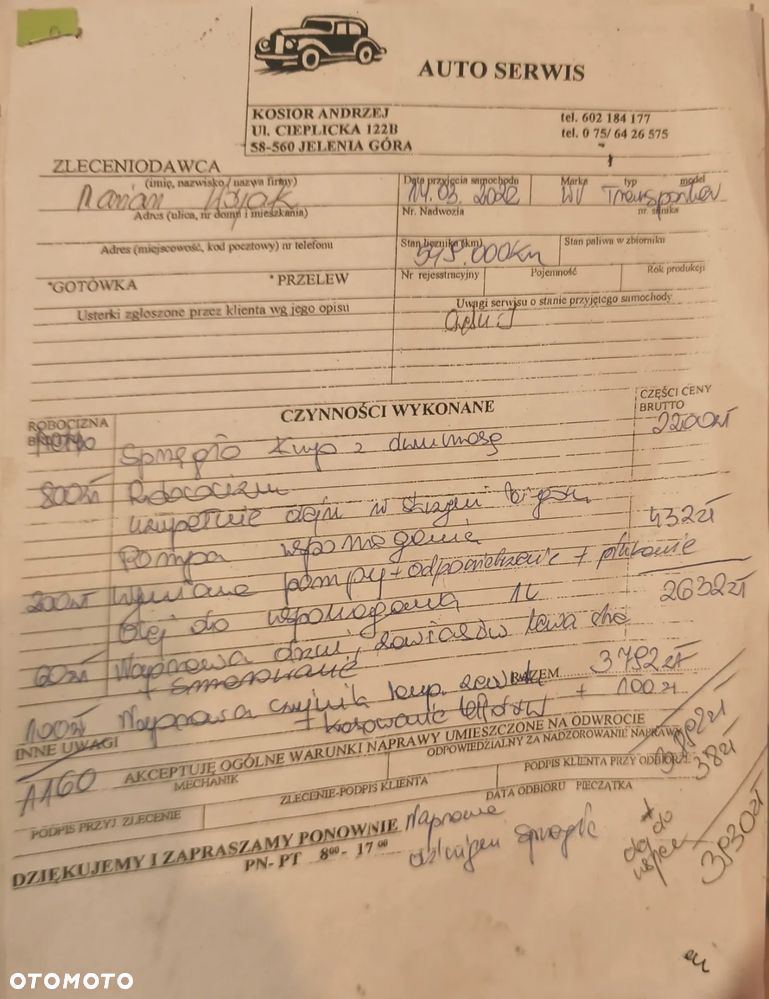 AUTO SERWIS
KOSIOR ANDRZEJ
Ul. CIEPLICKA 122B
58-560 JELENIA GÓRA
tel. 602 184 177
tel. 0 75/ 64 26 575
ZLECENIODAWCA
(imię, nazwisko / nazwa firmy)
Marian
Adres (ulica, nr domu i mieszkania)
Adres (miejscowość, kod pocztowy) nr telefonu
*GOTÓWKA * PRZELEW
Usterki zgłoszone przez klienta wg jego opisu
Data przyjęcia samochodu
2022
Marka typ model
Transporter
Nr. Nadwozia
nr. silnika
Stan licznika (km)
000km
Stan paliwa w zbiorniku
Nr rejesstracyjny
Pojemność
Rok produkcji
Uwagi serwisu o stanie przyjętego samochody
ROBOCIZNA
BRUTTO
CZYNNOŚCI WYKONANE
CZĘŚCI CENY
BRUTTO
Sprzęgło kmp z dwumasą 2200zł
800zł Robocizna
uzupełnienie oleju w skrzyni biegów
Pompa wspomagania 432zł
200zł Wymiana pompy + odpowietrzenie + płukanie
Olej do wspomagania 1L 2632zł
60zł Naprawa drzwi, zawiasów lewa
+ smarowanie
RAZEM 3792zł
100zł Naprawa czujnik temp. zewn
+ kasowanie błędów + 100zł
INNE UWAGI
1160
AKCEPTUJĘ OGÓLNE WARUNKI NAPRAWY UMIESZCZONE NA ODWROCIE
MECHANIK
ODPOWIEDZIALNY ZA NADZOROWANIE NAPRAWY
3892zł
38zł
PODPIS PRZYJ ZLECENIE
ZLECENIE-PODPIS KLIENTA
PODPIS KLIENTA PRZY ODBIORZE
DATA ODBIORU PIECZĄTKA
DZIĘKUJEMY I ZAPRASZAMY PONOWNIE
PN- PT 8⁰⁰- 17⁰⁰
Naprawa
3930zł
OTOMOTO